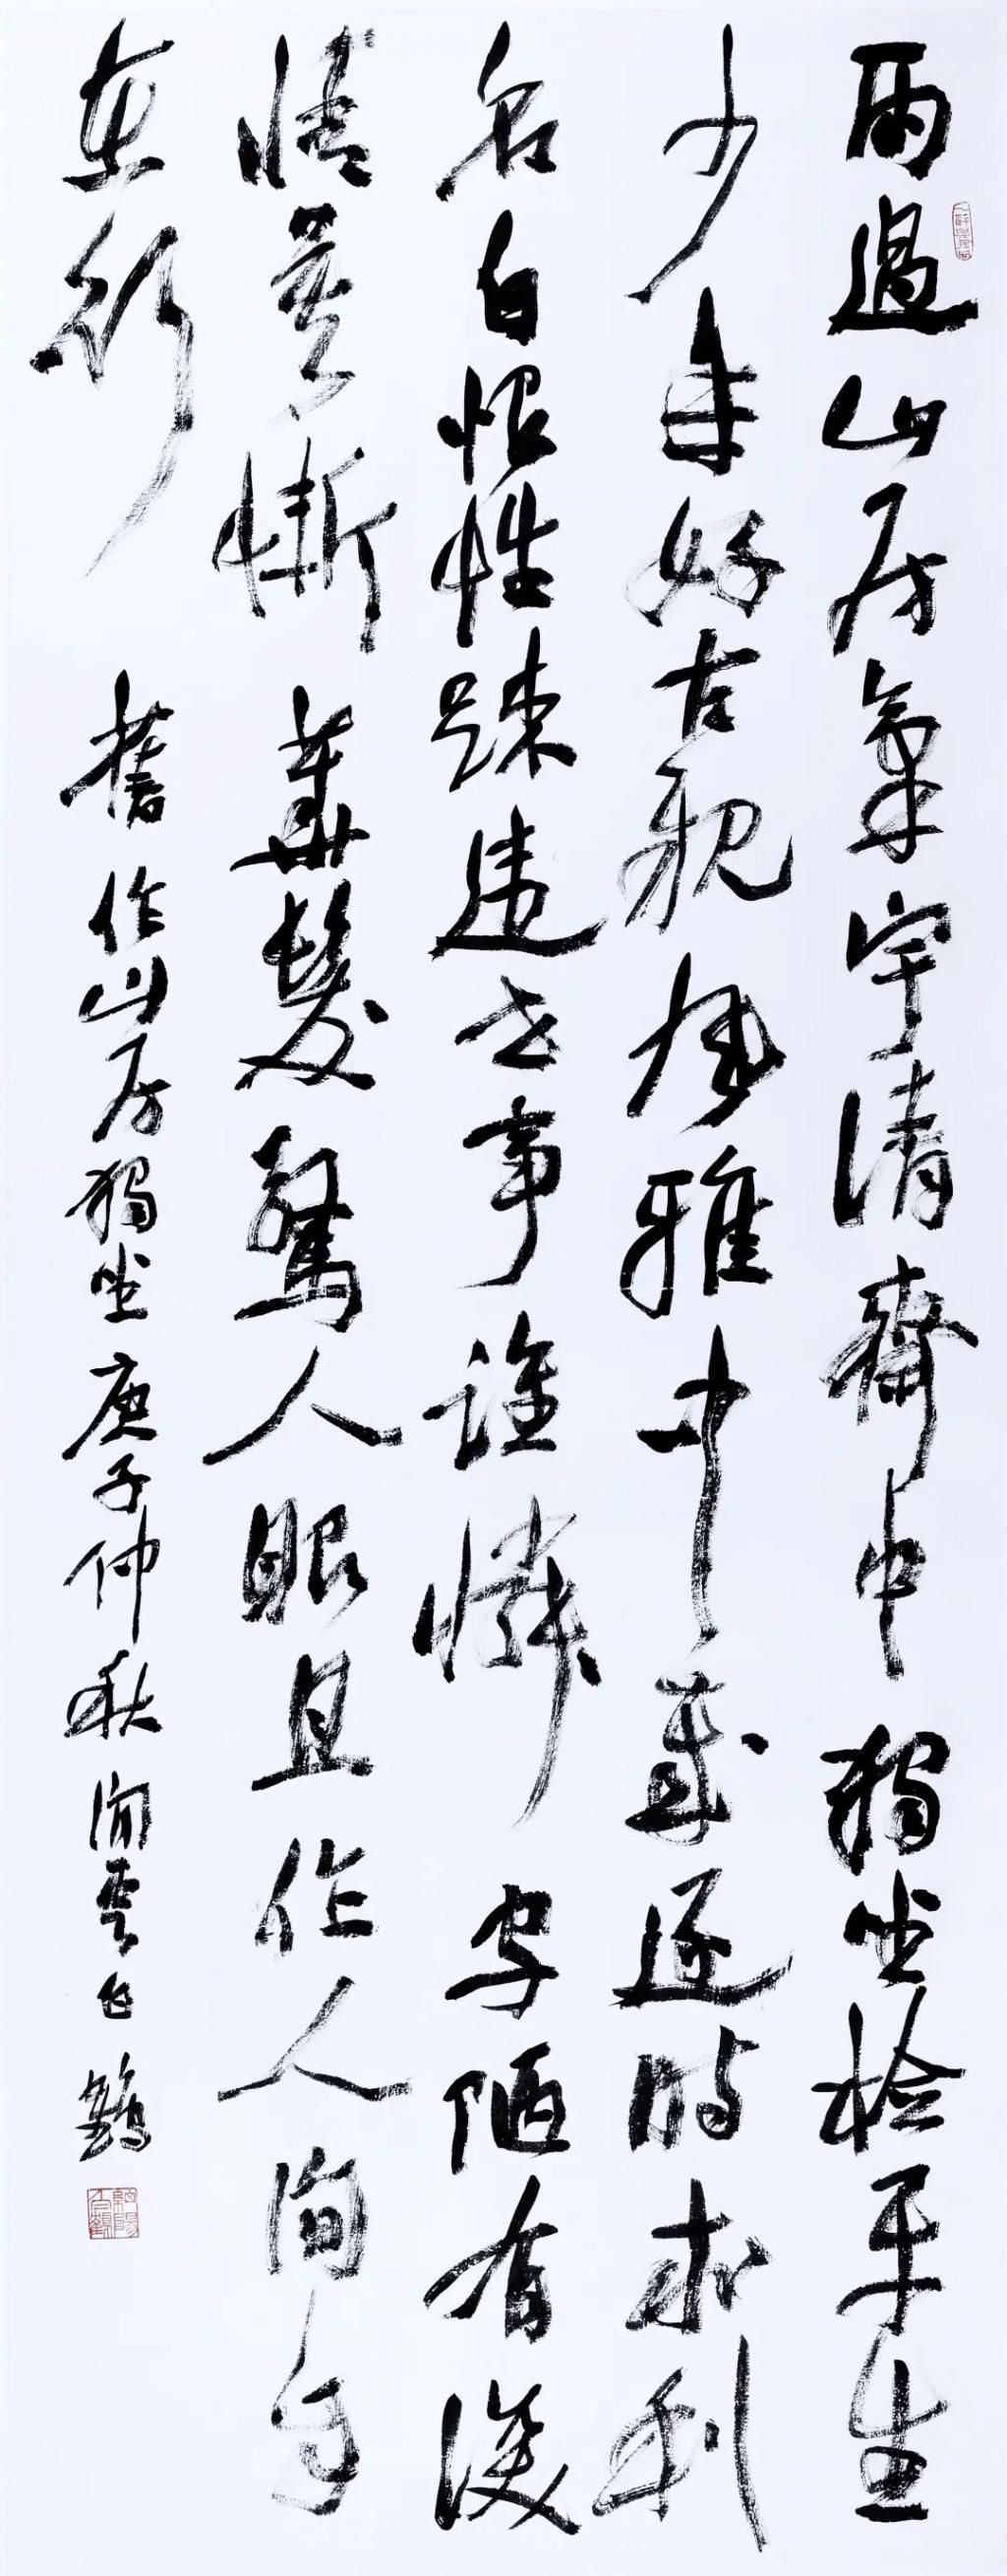 雨過山房氣宇清齋中獨坐檢平生
少年好古親風雅中歲逐時求利
名自恨性疎違世事誰憐守陋有深
情莫慚華髮驚人眼且作人間自
在行
舊作山房獨坐庚子仲秋閒雲白鶴